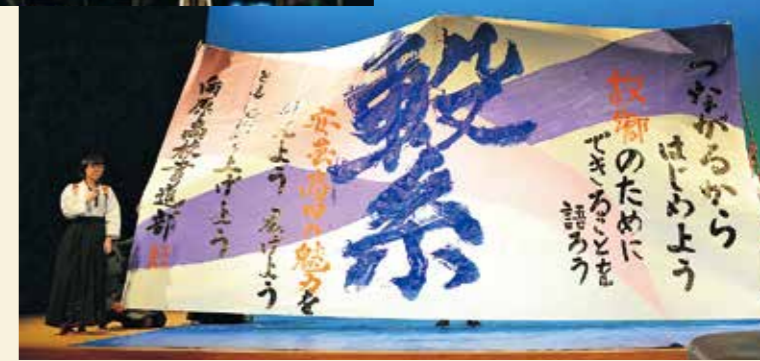 つながるから
はじめよう
故郷のために
できることを
語ろう
繋
安芸高田の魅力を
えよう 広げよう
ともに上げよう
向原高校書道部